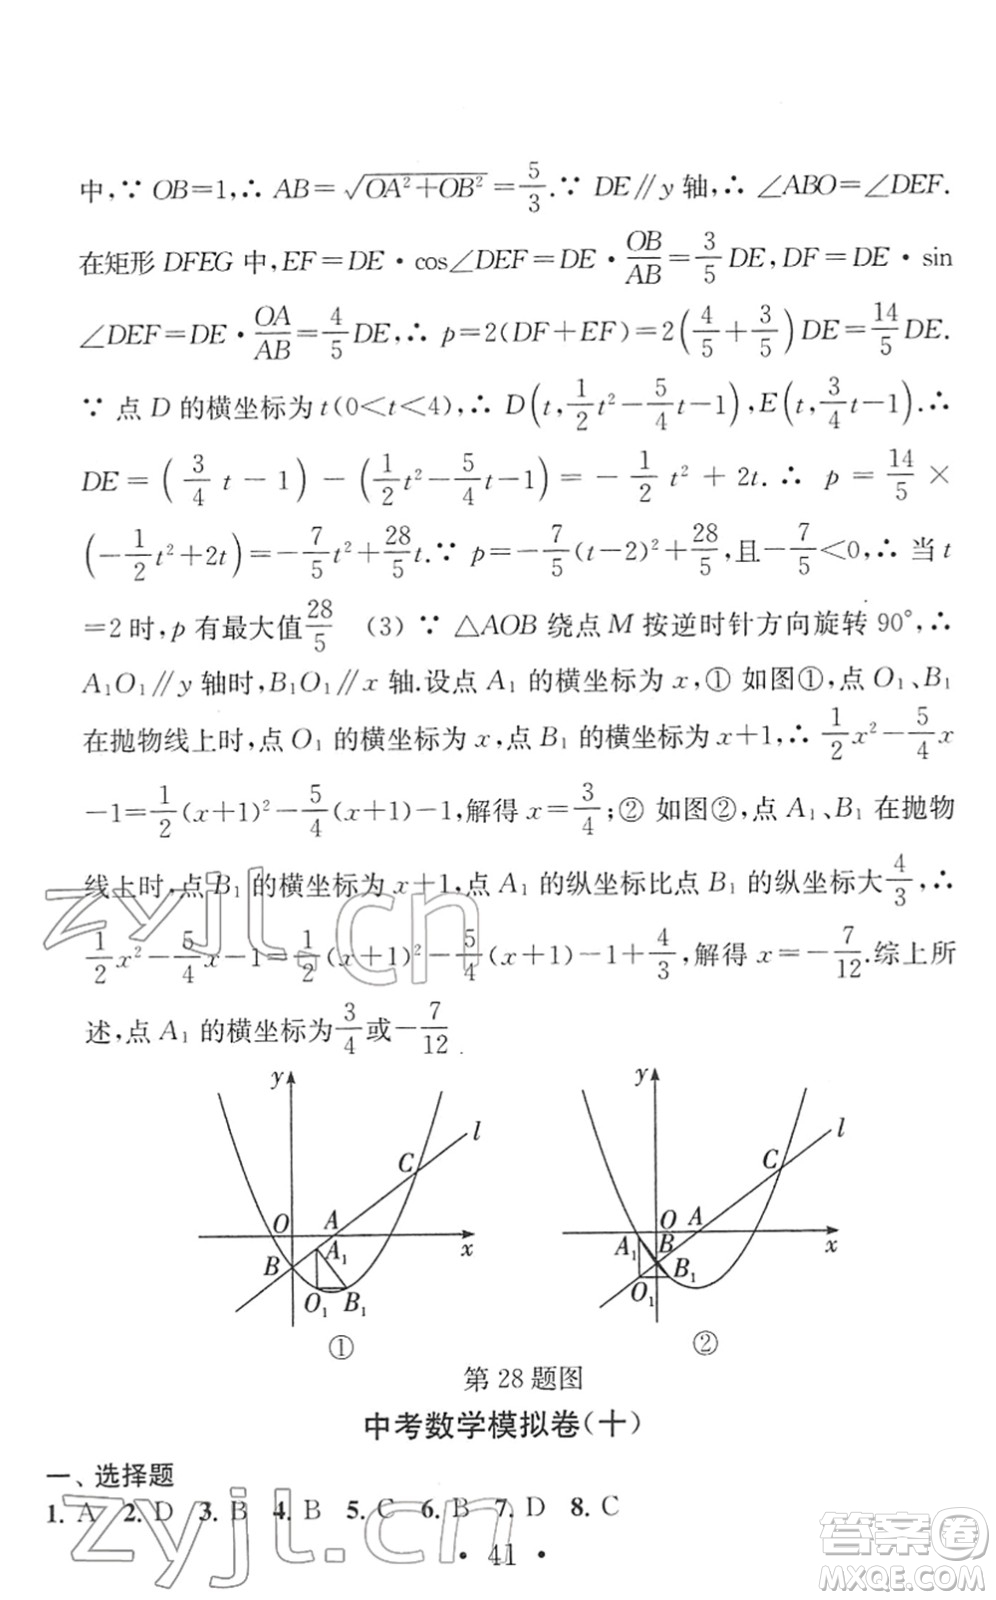 中,∵ OB=1,∴ AB=√(OA²+OB²)=5/3.∵ DE∥y 轴,∴ ∠ABO=∠DEF.
在矩形 DFEG 中,EF=DE·cos∠DEF=DE·OB/AB=3/5DE,DF=DE·sin
∠DEF=DE·OA/AB=4/5DE,∴ p=2(DF+EF)=2(4/5+3/5)DE=14/5DE.
∵ 点 D 的横坐标为 t(0<t<4),∴ D(t,1/2t²-5/4t-1),E(t,3/4t-1).∴
DE=(3/4t-1)-(1/2t²-5/4t-1)=-1/2t²+2t.∴ p=14/5×
(-1/2t²+2t)=-7/5t²+28/5t.∵ p=-7/5(t-2)²+28/5,且-7/5<0,∴ 当 t
=2 时,p 有最大值28/5 (3) ∵ △AOB 绕点 M 按逆时针方向旋转 90°,∴
A₁O₁∥y 轴时,B₁O₁∥x 轴.设点 A₁ 的横坐标为 x,① 如图①,点 O₁、B₁
在抛物线上时,点 O₁ 的横坐标为 x,点 B₁ 的横坐标为 x+1,∴ 1/2x²-5/4x
-1=1/2(x+1)²-5/4(x+1)-1,解得 x=3/4;② 如图②,点 A₁、B₁ 在抛物
线上时,点 B₁ 的横坐标为 x+1,点 A₁ 的纵坐标比点 B₁ 的纵坐标大4/3,∴
1/2x²-5/4x-1=1/2(x+1)²-5/4(x+1)-1+4/3,解得 x=-7/12.综上所
述,点 A₁ 的横坐标为3/4或-7/12
zyjl.cn
y
l
C
O
A
x
B
A₁
O₁
B₁
①
y
l
C
O
A
x
A₁
B
B₁
O₁
②
第 28 题图
中考数学模拟卷(十)
一、选择题
1. A 2. D 3. B 4. B 5. C 6. B 7. D 8. C
zyjl.cn
· 41 ·
答案卷
MXQE.COM